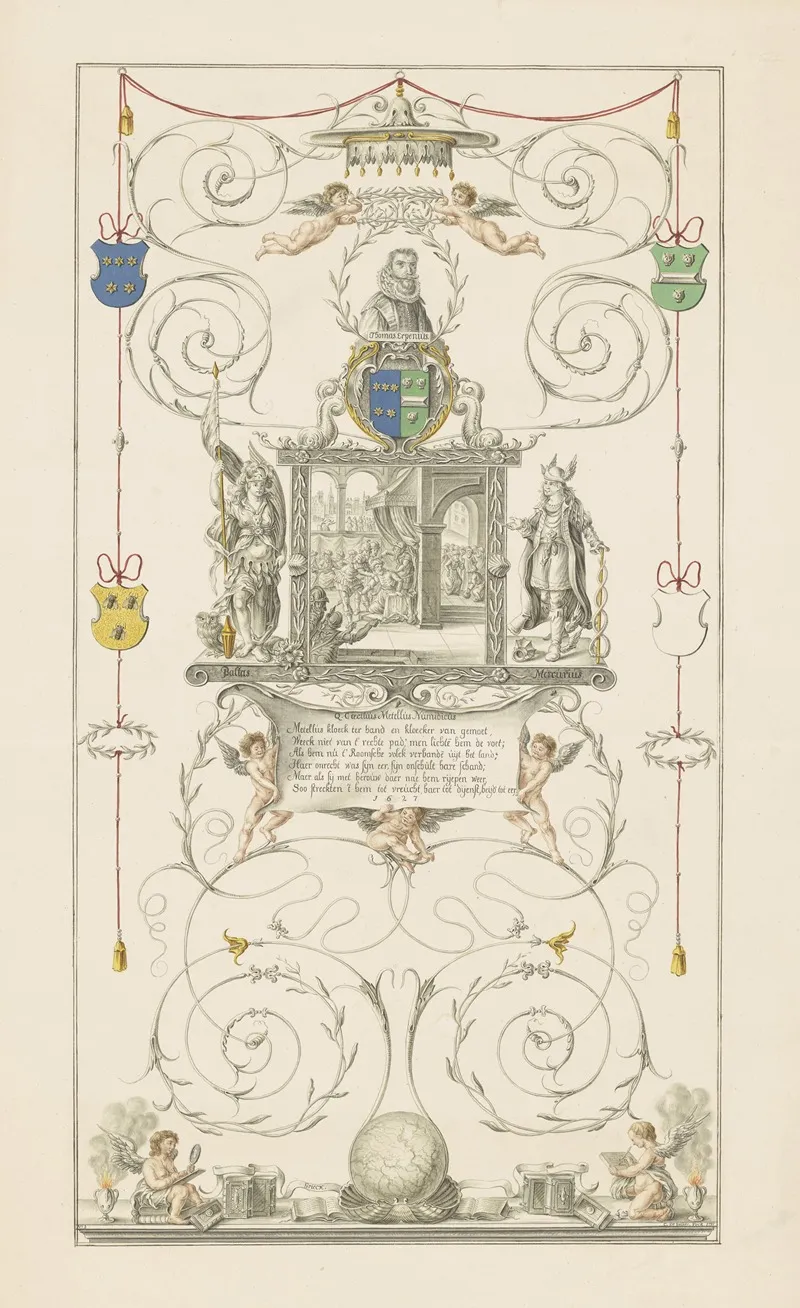 Thomas Erpenius
Pallas
Mercurius
Q. Caecilius Metellus Numidicus
Metellus kloeck ter hand en kloecker van gemoet,
Weeck niet van 't rechte pad, men lichte hem de voet;
Als hem nu 't Roomsche volck verbande uyt het land;
Haer onrecht was syn eer, syn onschult hare schand;
Maer als sy met berouw daer nae hem riepen weer,
Soo streckten 't hem tot vreucht, haer tot dienst, beyd tot eer.
1627